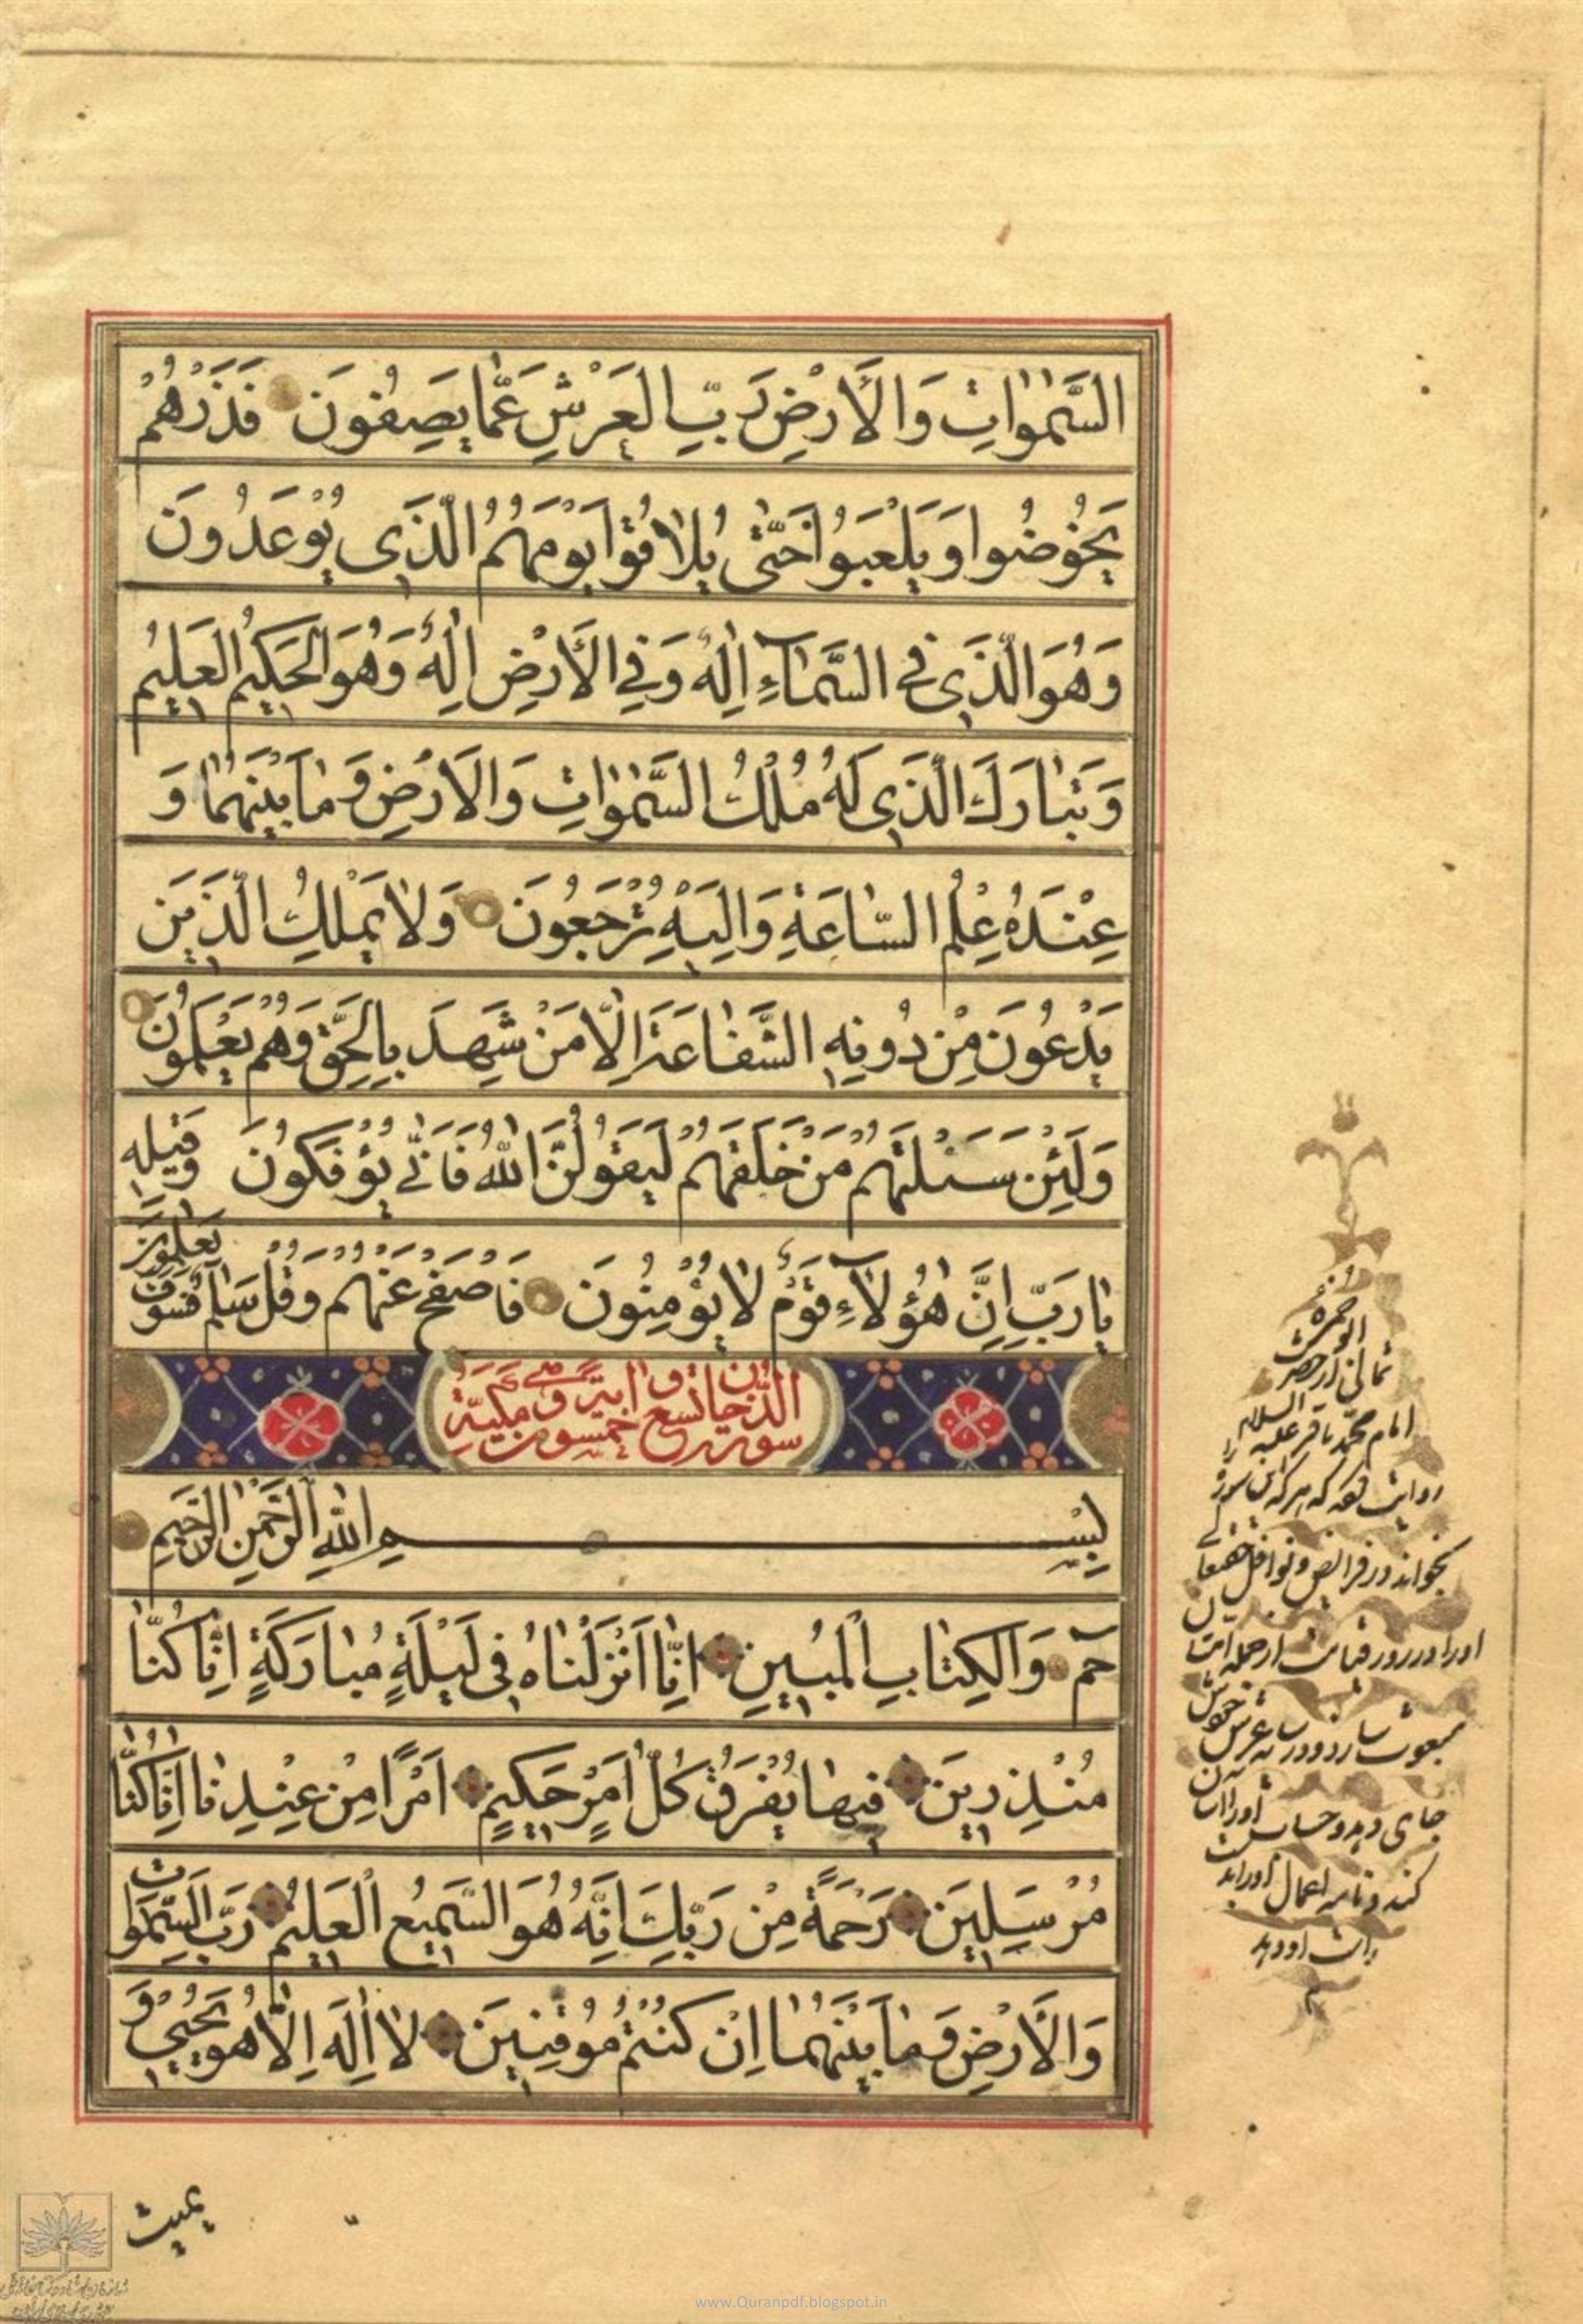 السَّمٰوٰاتِ وَالْأَرْضِ رَبِّ الْعَرْشِ عَمّٰا يَصِفُونَ فَذَرْهُمْ
يَخُوضُوا وَيَلْعَبُوا حَتّٰى يُلٰاقُوا يَوْمَهُمُ الَّذِي يُوْعَدُونَ
وَهُوَ الَّذِي فِي السَّمٰآءِ اِلٰهٌ وَفِي الْأَرْضِ اِلٰهٌ وَهُوَ الْحَكِيمُ الْعَلِيمُ
وَتَبٰارَكَ الَّذِي لَهُ مُلْكُ السَّمٰوٰاتِ وَالْاَرْضِ وَمٰا بَيْنَهُمٰا وَ
عِنْدَهُ عِلْمُ السّٰاعَةِ وَاِلَيْهِ تُرْجَعُونَ وَلٰا يَمْلِكُ الَّذِينَ
يَدْعُونَ مِنْ دُونِهِ الشَّفٰاعَةَ اِلّٰا مَنْ شَهِدَ بِالْحَقِّ وَهُمْ يَعْلَمُونَ
وَلَئِنْ سَئَلْتَهُمْ مَنْ خَلَقَهُمْ لَيَقُولُنَّ اللّٰهُ فَاَنّٰى يُؤْفَكُونَ وَقِيلِهِ
يٰا رَبِّ اِنَّ هٰؤُلٰآءِ قَوْمٌ لٰا يُؤْمِنُونَ فَاصْفَحْ عَنْهُمْ وَقُلْ سَلٰامٌ فَسَوْفَ يَعْلَمُونَ
سورة الدّخان تسع و خمسون اية و هي مكيّة
بِسْمِ اللّٰهِ الرَّحْمٰنِ الرَّحِيمِ
حٓمٓ وَالْكِتٰابِ الْمُبِينِ اِنّٰا اَنْزَلْنٰاهُ فِي لَيْلَةٍ مُبٰارَكَةٍ اِنّٰا كُنّٰا
مُنْذِرِينَ فِيهٰا يُفْرَقُ كُلُّ اَمْرٍ حَكِيمٍ اَمْرًا مِنْ عِنْدِنٰا اِنّٰا كُنّٰا
مُرْسِلِينَ رَحْمَةً مِنْ رَبِّكَ اِنَّهُ هُوَ السَّمِيعُ الْعَلِيمُ رَبِّ السَّمٰوٰاتِ
وَالْاَرْضِ وَمٰا بَيْنَهُمٰا اِنْ كُنْتُمْ مُوقِنِينَ لٰا اِلٰهَ اِلّٰا هُوَ يُحْيِي وَ
يميت
ابو حمزه
ثمالى از حضرت
امام محمّد باقر عليه السلام
روايت كه هر كه اين سوره
بخواند در فرايض و نوافل
اورا در روز قيامت از جمله
مبعوث سازد و در سايه عرش خويش
جاى دهد و حساب
كند و نامه اعمال اورا به
راست او دهد
www.Quranpdf.blogspot.in